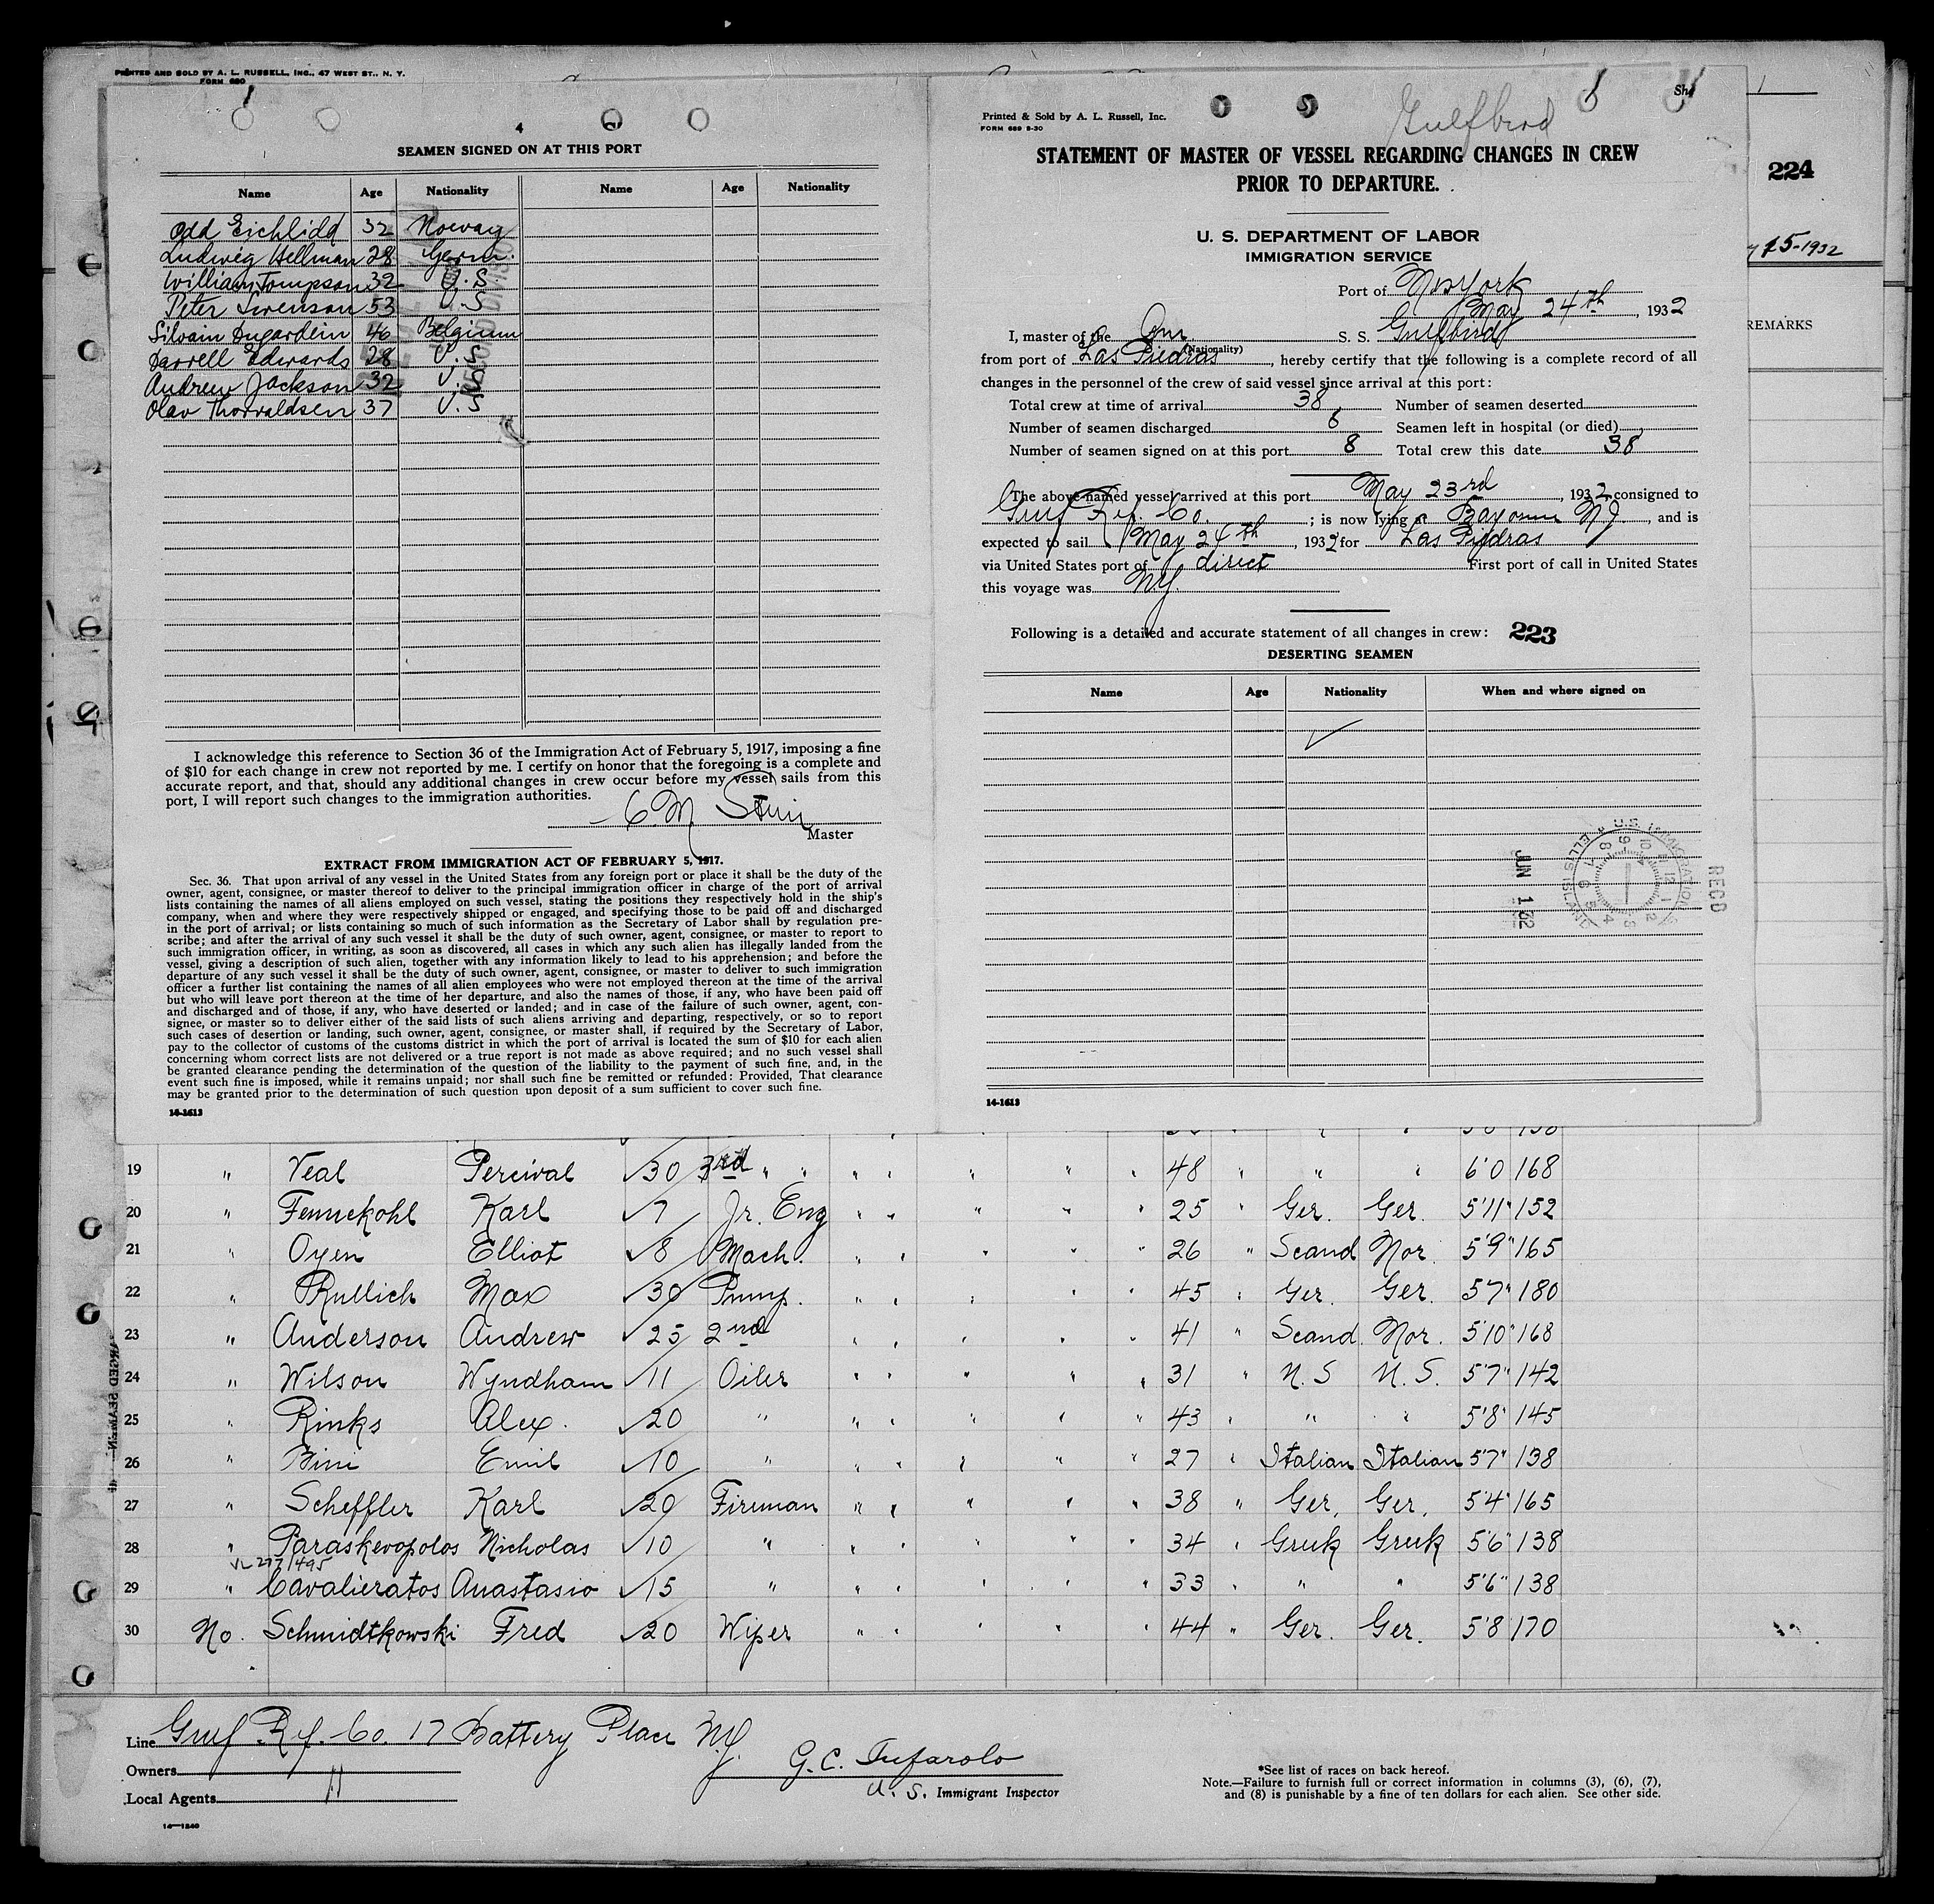 PRINTED AND SOLD BY A. L. RUSSELL, INC., 47 WEST ST., N. Y.
FORM 680
4
SEAMEN SIGNED ON AT THIS PORT
Name Age Nationality Name Age Nationality
Odd Eichlidd 32 Norway
Ludwig Hellman 28 Germ.
William Tompson 32 U.S.
Peter Swenson 53 U.S
Silvain Dugardein 46 Belgium
Darrell Edwards 28 U.S
Andrew Jackson 32 U.S
Olav Thorvaldsen 37 U.S
I acknowledge this reference to Section 36 of the Immigration Act of February 5, 1917, imposing a fine
of $10 for each change in crew not reported by me. I certify on honor that the foregoing is a complete and
accurate report, and that, should any additional changes in crew occur before my vessel sails from this
port, I will report such changes to the immigration authorities.
C.M.
Master
EXTRACT FROM IMMIGRATION ACT OF FEBRUARY 5, 1917.
Sec. 36. That upon arrival of any vessel in the United States from any foreign port or place it shall be the duty of the
owner, agent, consignee, or master thereof to deliver to the principal immigration officer in charge of the port of arrival
lists containing the names of all aliens employed on such vessel, stating the positions they respectively hold in the ship's
company, when and where they were respectively shipped or engaged, and specifying those to be paid off and discharged
in the port of arrival; or lists containing so much of such information as the Secretary of Labor shall by regulation pre-
scribe; and after the arrival of any such vessel it shall be the duty of such owner, agent, consignee, or master to report to
such immigration officer, in writing, as soon as discovered, all cases in which any such alien has illegally landed from the
vessel, giving a description of such alien, together with any information likely to lead to his apprehension; and before the
departure of any such vessel it shall be the duty of such owner, agent, consignee, or master to deliver to such immigration
officer a further list containing the names of all alien employees who were not employed thereon at the time of the arrival
but who will leave port thereon at the time of her departure, and also the names of those, if any, who have been paid off
and discharged and of those, if any, who have deserted or landed; and in case of the failure of such owner, agent, con-
signee, or master so to deliver either of the said lists of such aliens arriving and departing, respectively, or so to report
such cases of desertion or landing, such owner, agent, consignee, or master shall, if required by the Secretary of Labor,
pay to the collector of customs of the customs district in which the port of arrival is located the sum of $10 for each alien
concerning whom correct lists are not delivered or a true report is not made as above required; and no such vessel shall
be granted clearance pending the determination of the question of the liability to the payment of such fine, and, in the
event such fine is imposed, while it remains unpaid; nor shall such fine be remitted or refunded: Provided, That clearance
may be granted prior to the determination of such question upon deposit of a sum sufficient to cover such fine.
14-1613
Printed & Sold by A. L. Russell, Inc.
FORM 689 9-30
Gulfbird
STATEMENT OF MASTER OF VESSEL REGARDING CHANGES IN CREW
PRIOR TO DEPARTURE.
U. S. DEPARTMENT OF LABOR
IMMIGRATION SERVICE
Port of New York
May 24th, 1932
I, master of the Am. S. S. Gulfbird
(Nationality)
from port of Las Piedras, hereby certify that the following is a complete record of all
changes in the personnel of the crew of said vessel since arrival at this port:
Total crew at time of arrival 38 Number of seamen deserted
Number of seamen discharged 8 Seamen left in hospital (or died)
Number of seamen signed on at this port 8 Total crew this date 38
The above-named vessel arrived at this port May 23rd, 1932 consigned to
Gulf Ref. Co.; is now lying at Bayonne NJ, and is
expected to sail May 24th, 1932 for Las Piedras
via United States port of direct First port of call in United States
this voyage was N.Y.
Following is a detailed and accurate statement of all changes in crew: 223
DESERTING SEAMEN
Name Age Nationality When and where signed on
REC'D
U.S. IMMIGRATION ELLIS ISLAND
JUN 1 32
14-1613
Sh 1
224
15-1932
REMARKS
19 " Veal Percival 30 3rd " " " " " " " 48 " " " 6'0 168
20 " Fennekohl Karl 7 Jr. Eng " " " " " 25 " Ger. Ger. 5'11" 152
21 " Oyen Elliot 8 Mach. " " " " " 26 " Scand Nor. 5'9" 165
22 " Rullich Max 30 Pump. " " " " " 45 " Ger. Ger. 5'7" 180
23 " Anderson Andrew 25 2nd " " " " " 41 " Scand. Nor. 5'10" 168
24 " Wilson Wyndham 11 Oiler " " " " " 31 " U.S U.S. 5'7" 142
25 " Rinks Alex. 20 " " " " " " 43 " " " 5'8" 145
26 " Bini Emil 10 " " " " " " 27 " Italian Italian 5'7" 138
27 " Scheffler Karl 20 Fireman " " " " " 38 " Ger. Ger. 5'4" 165
28 " Paraskevopolos Nicholas 10 " " " " " " 34 " Greek Greek 5'6" 138
29 " Cavalieratos Anastasio 15 " " " " " " 33 " " " 5'6" 138
30 No. Schmidtkowski Fred 20 Wiper " " " " " 44 " Ger. Ger. 5'8 170
Line Gulf Ref. Co. 17 Battery Place N.Y.
Owners "
Local Agents
G. C. Tufarolo
U. S. Immigrant Inspector
*See list of races on back hereof.
Note.—Failure to furnish full or correct information in columns (3), (6), (7),
and (8) is punishable by a fine of ten dollars for each alien. See other side.
14—1240